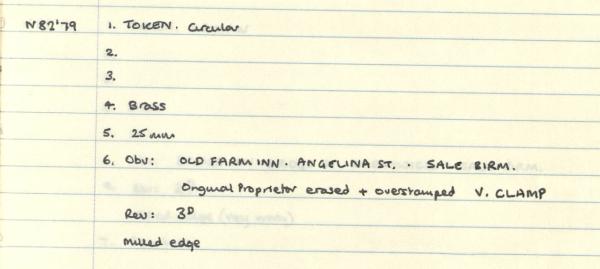 N82'79 1. TOKEN. Circular
2.
3.
4. Brass
5. 25mm
6. Obv: OLD FARM INN · ANGELINA ST. · SALE BIRM.
Original Proprietor erased + overstamped V. CLAMP
Rev: 3D
Milled edge